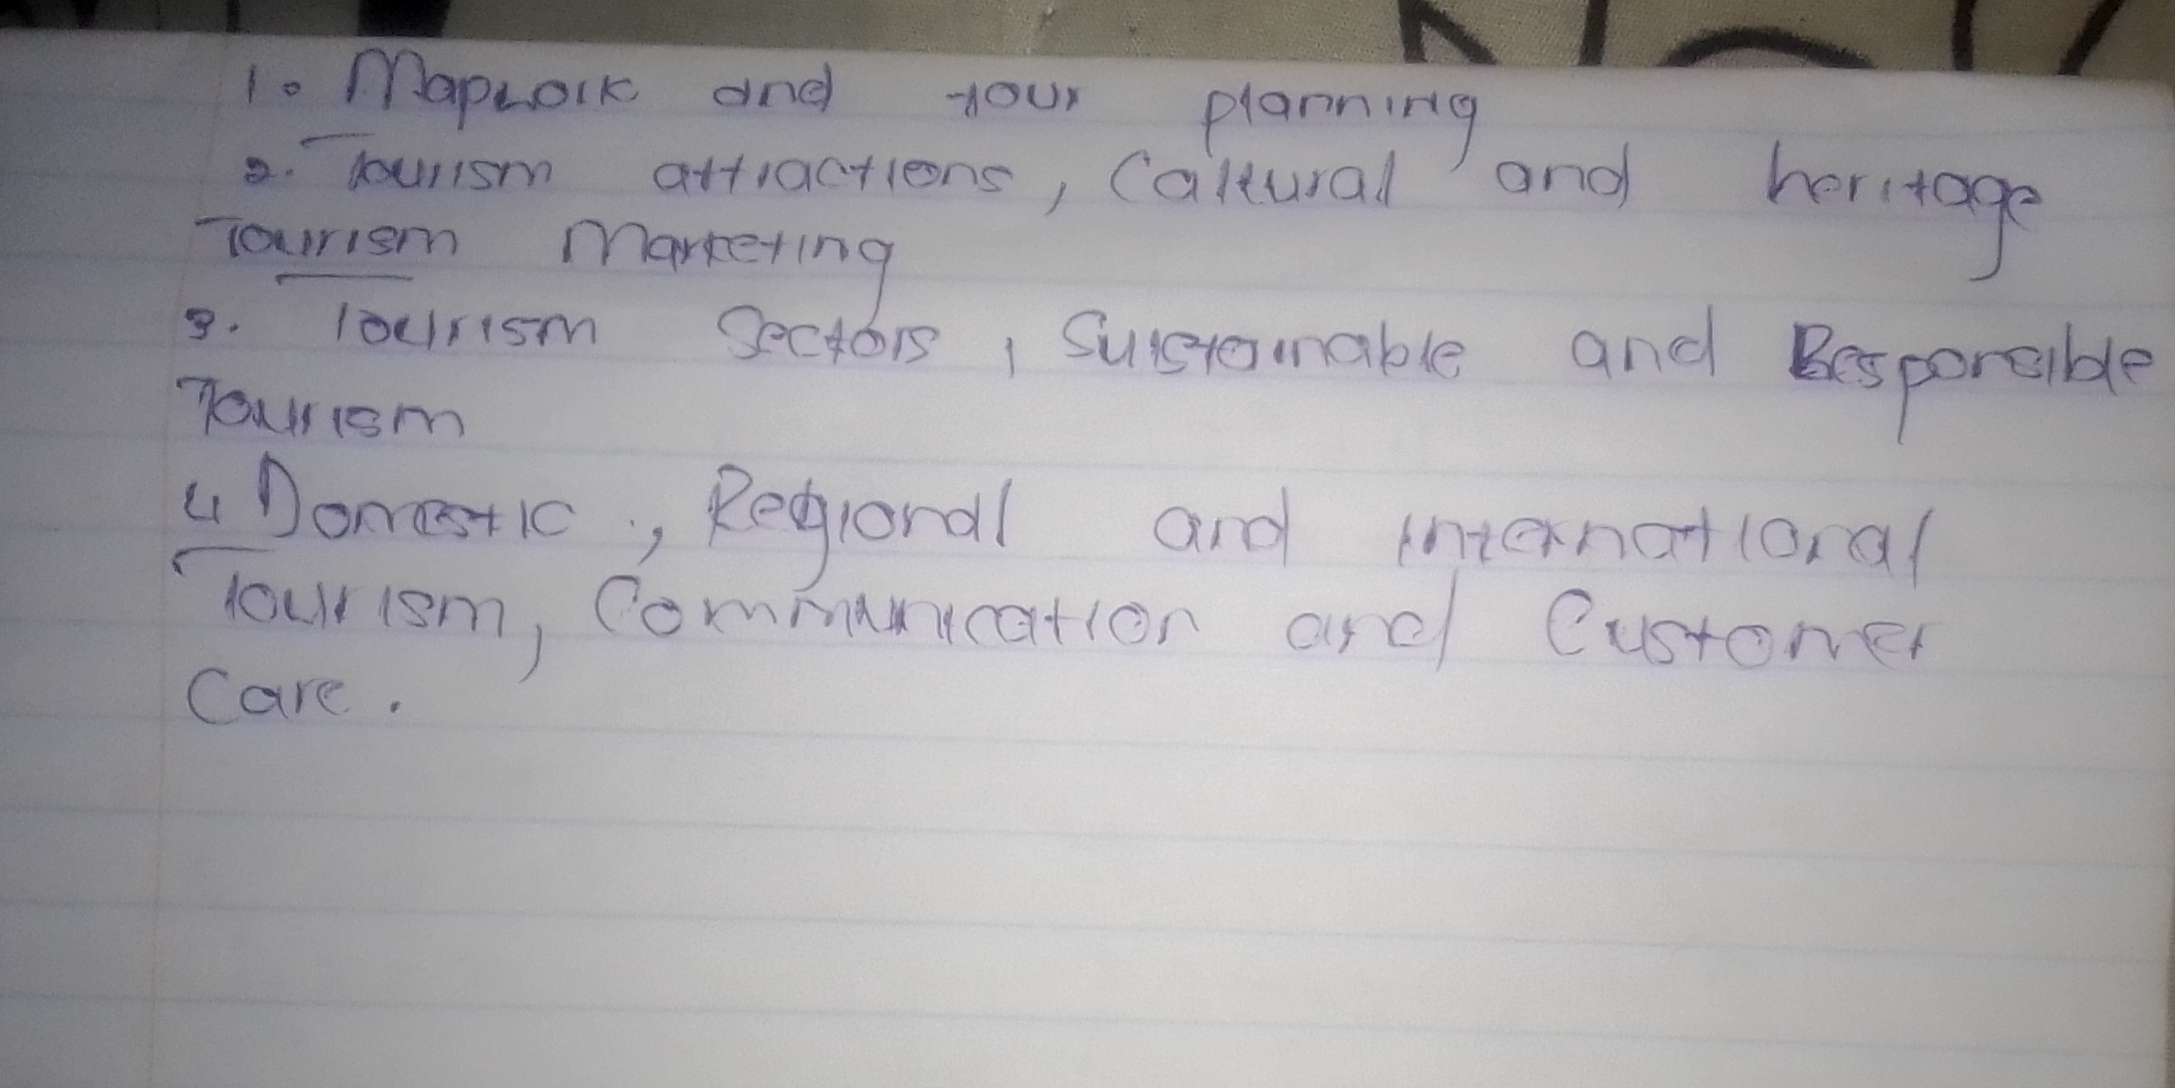 1. Mapwork and tour planning
2. Tourism attractions, Caltural and heritage
Tourism Marketing
3. Tourism Sectors, Sustainable and Responsible
Tourism
4 Domestic, Regional and international
Tourism, Communication and Customer
Care.